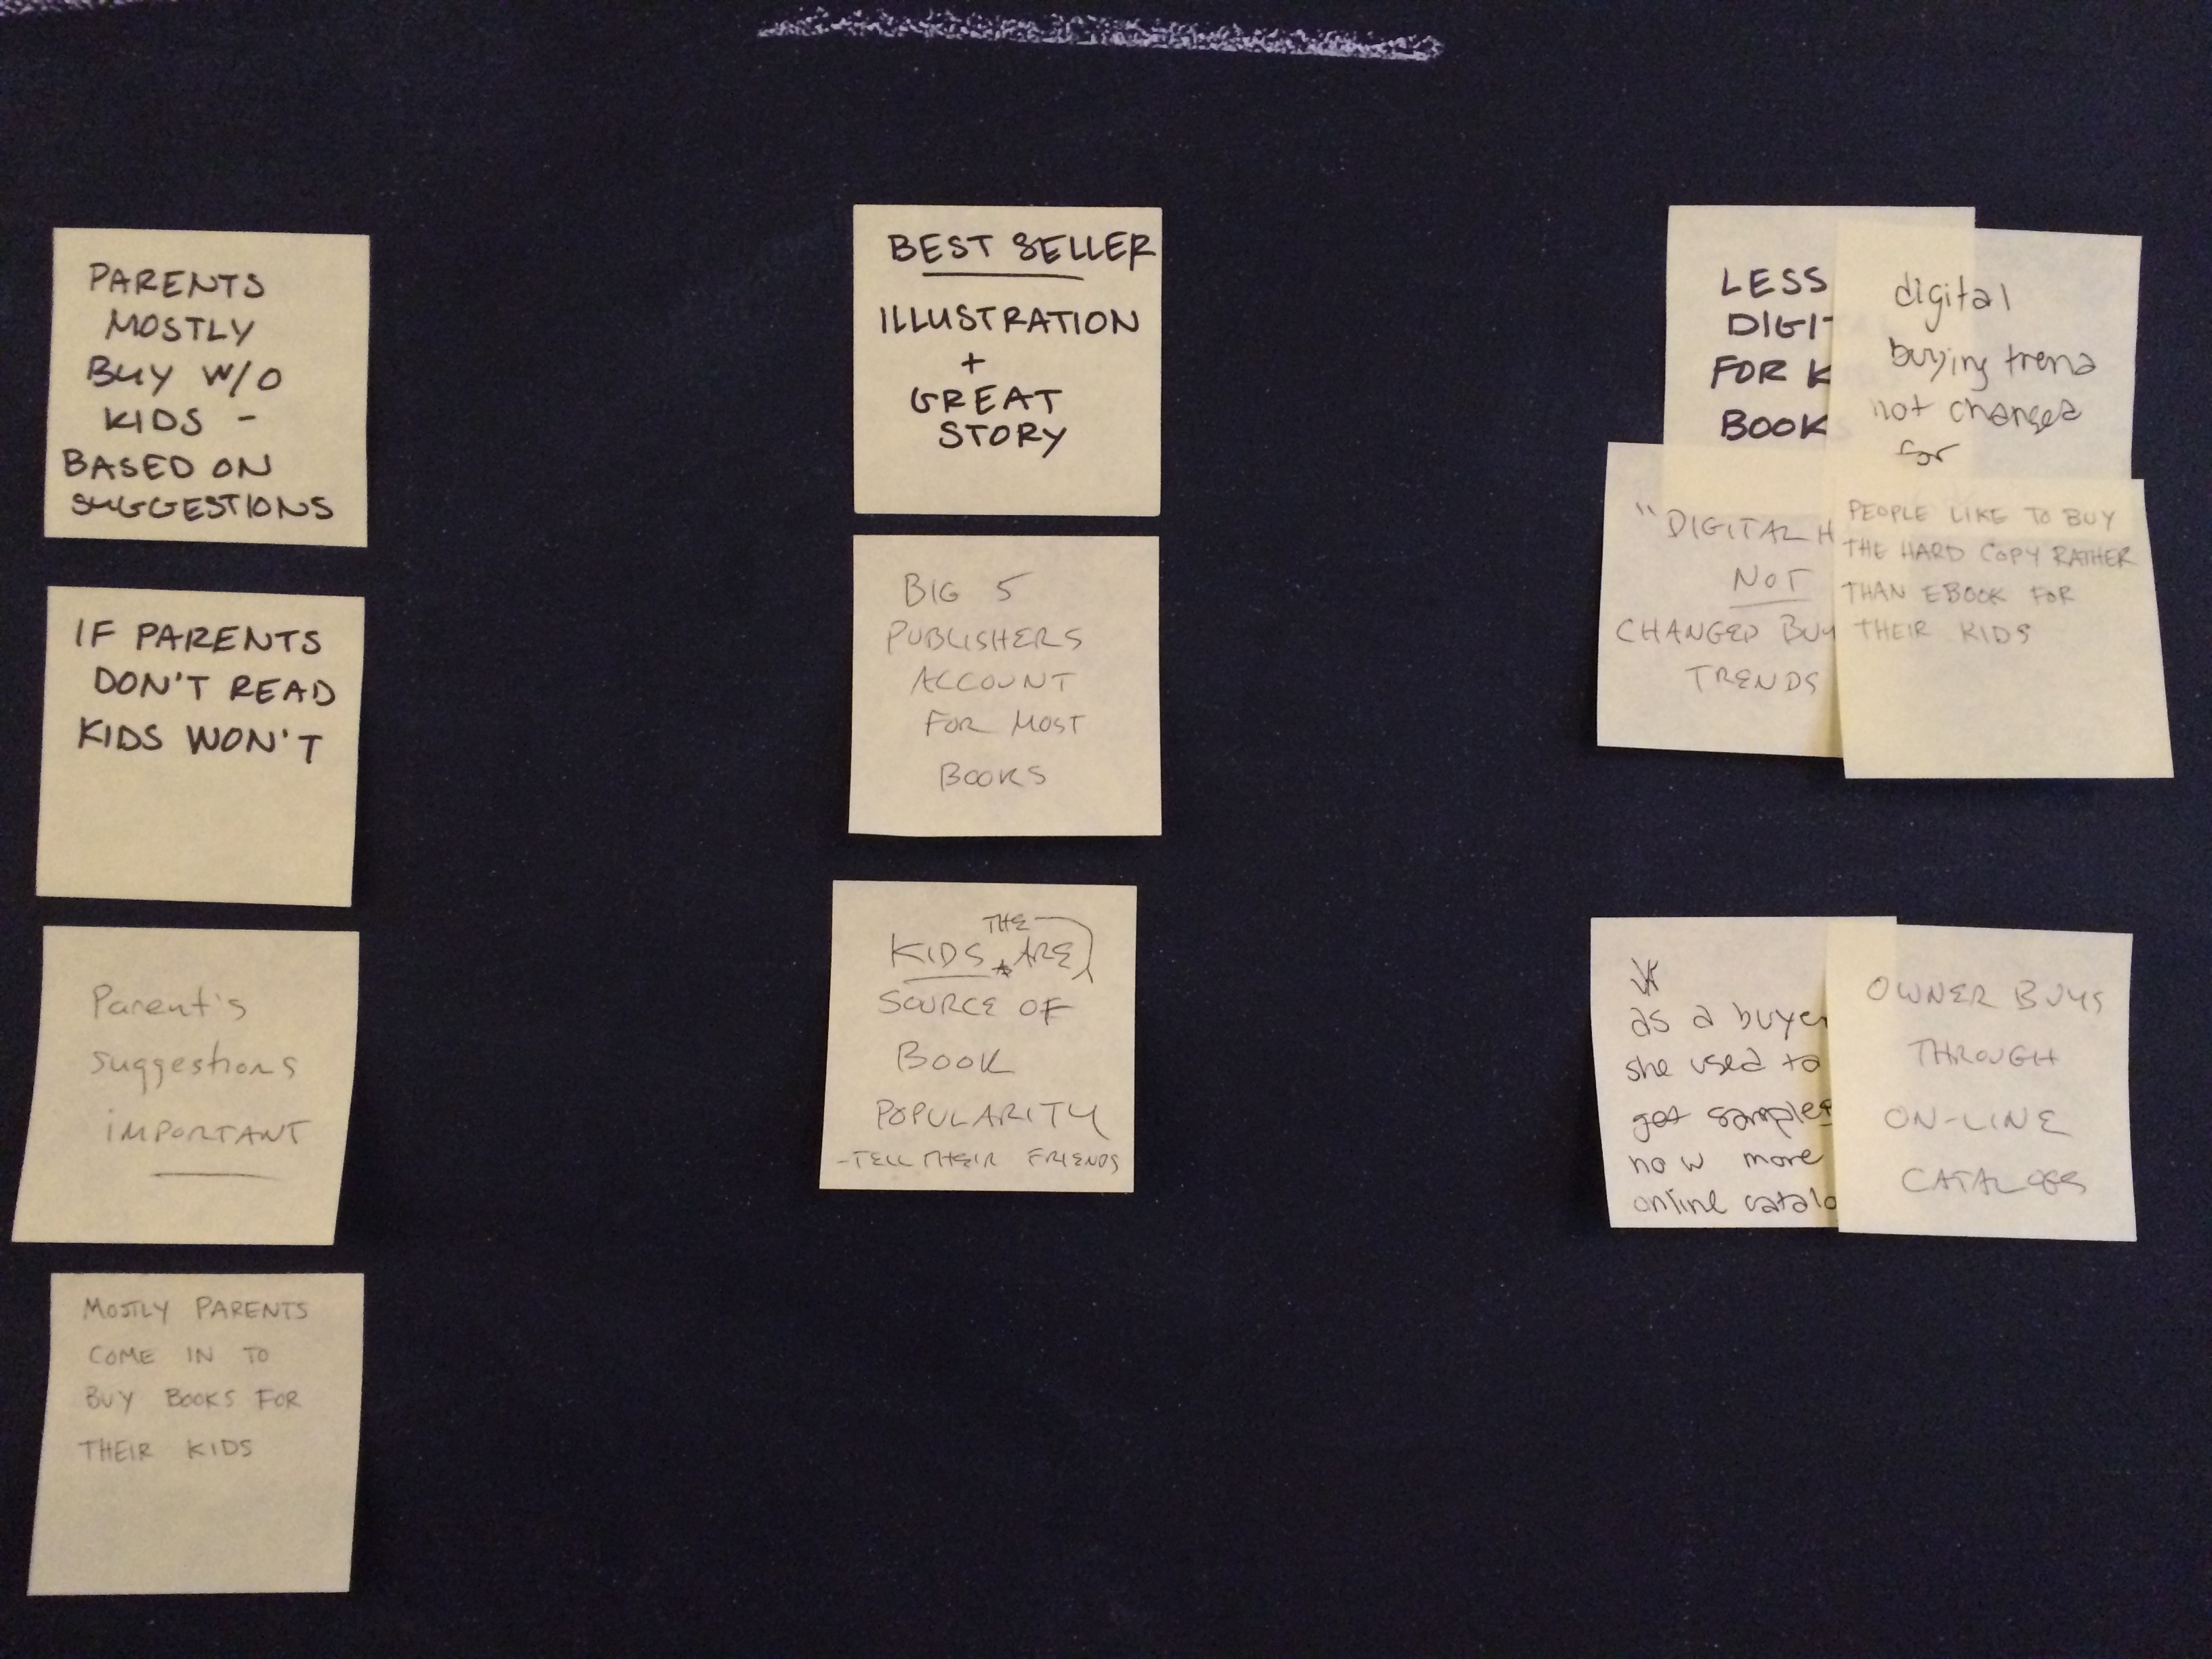 PARENTS
MOSTLY
BUY W/O
KIDS -
BASED ON
SUGGESTIONS
IF PARENTS
DON'T READ
KIDS WON'T
Parent's
suggestions
IMPORTANT
MOSTLY PARENTS
COME IN TO
BUY BOOKS FOR
THEIR KIDS
BEST SELLER
ILLUSTRATION
+
GREAT
STORY
BIG 5
PUBLISHERS
ACCOUNT
FOR MOST
BOOKS
THE
KIDS ARE
SOURCE OF
BOOK
POPULARITY
-TELL THEIR FRIENDS
LESS
DIGIT
FOR K
BOOK
digital
buying trend
not changed
for
"DIGITAL H
NOT
CHANGED BUY
TRENDS
PEOPLE LIKE TO BUY
THE HARD COPY RATHER
THAN EBOOK FOR
THEIR KIDS
as a buyer
she used to
get samples
now more
online catalo
OWNER BUYS
THROUGH
ON-LINE
CATALOGS